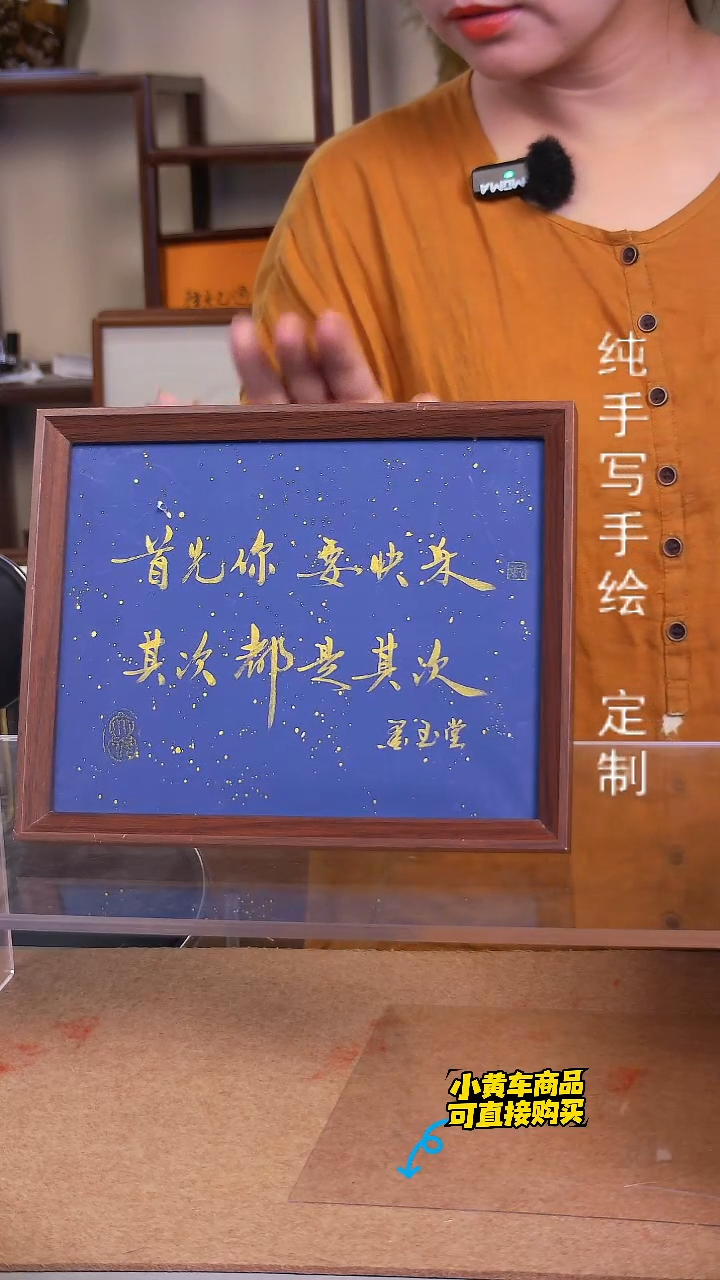 首先你要快乐
其次都是其次
墨玉堂
纯手写手绘 定制
小黄车商品
可直接购买